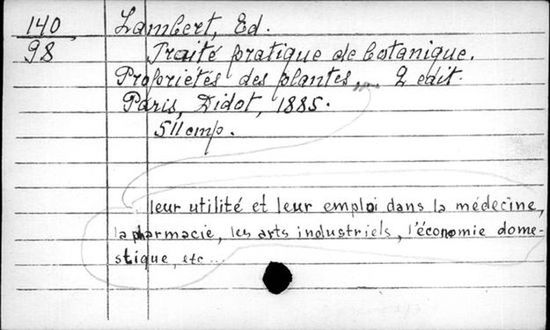 140
98
Lambert, Ed.
Traité pratique de botanique.
Propriétés des plantes... 2 edit.
Paris, Didot, 1885.
511 cmp.
leur utilité et leur emploi dans la médecine,
la pharmacie, les arts industriels, l'économie dome-
stique, etc...